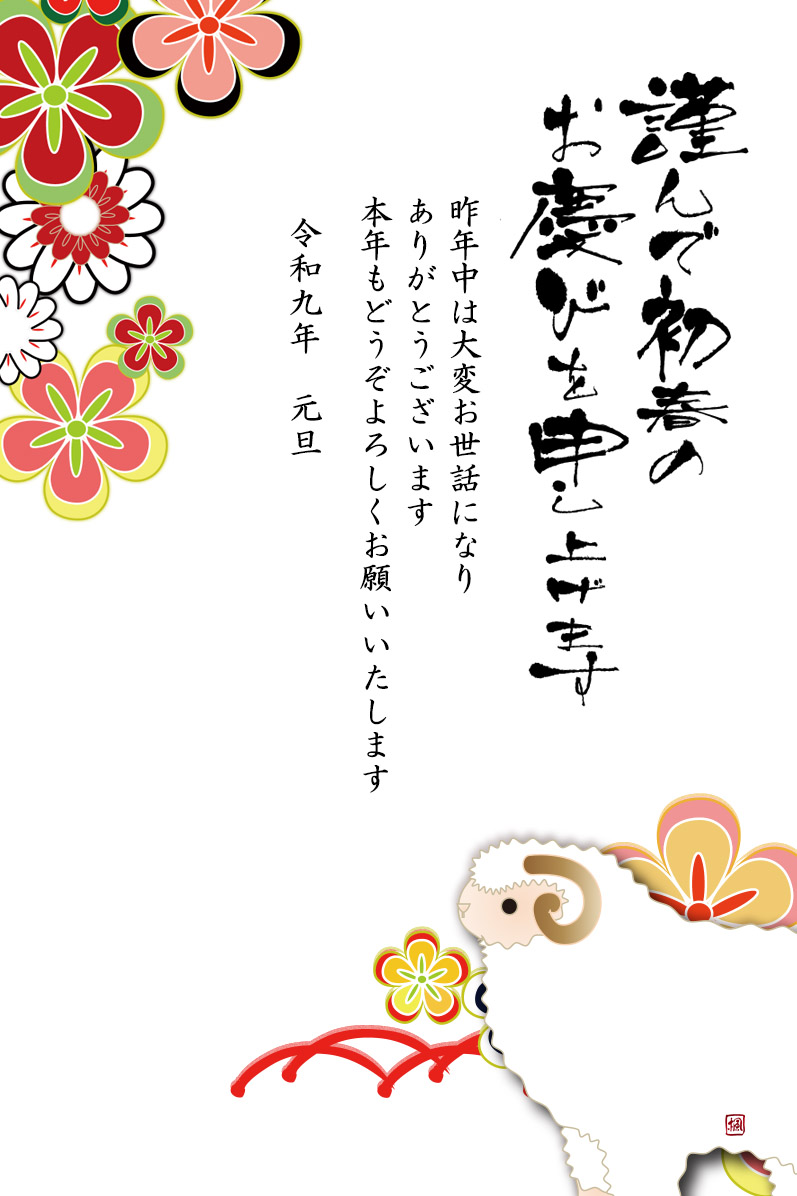 謹んで初春の
お慶びを申し上げます
昨年中は大変お世話になり
ありがとうございます
本年もどうぞよろしくお願いいたします
令和九年　元旦
楓